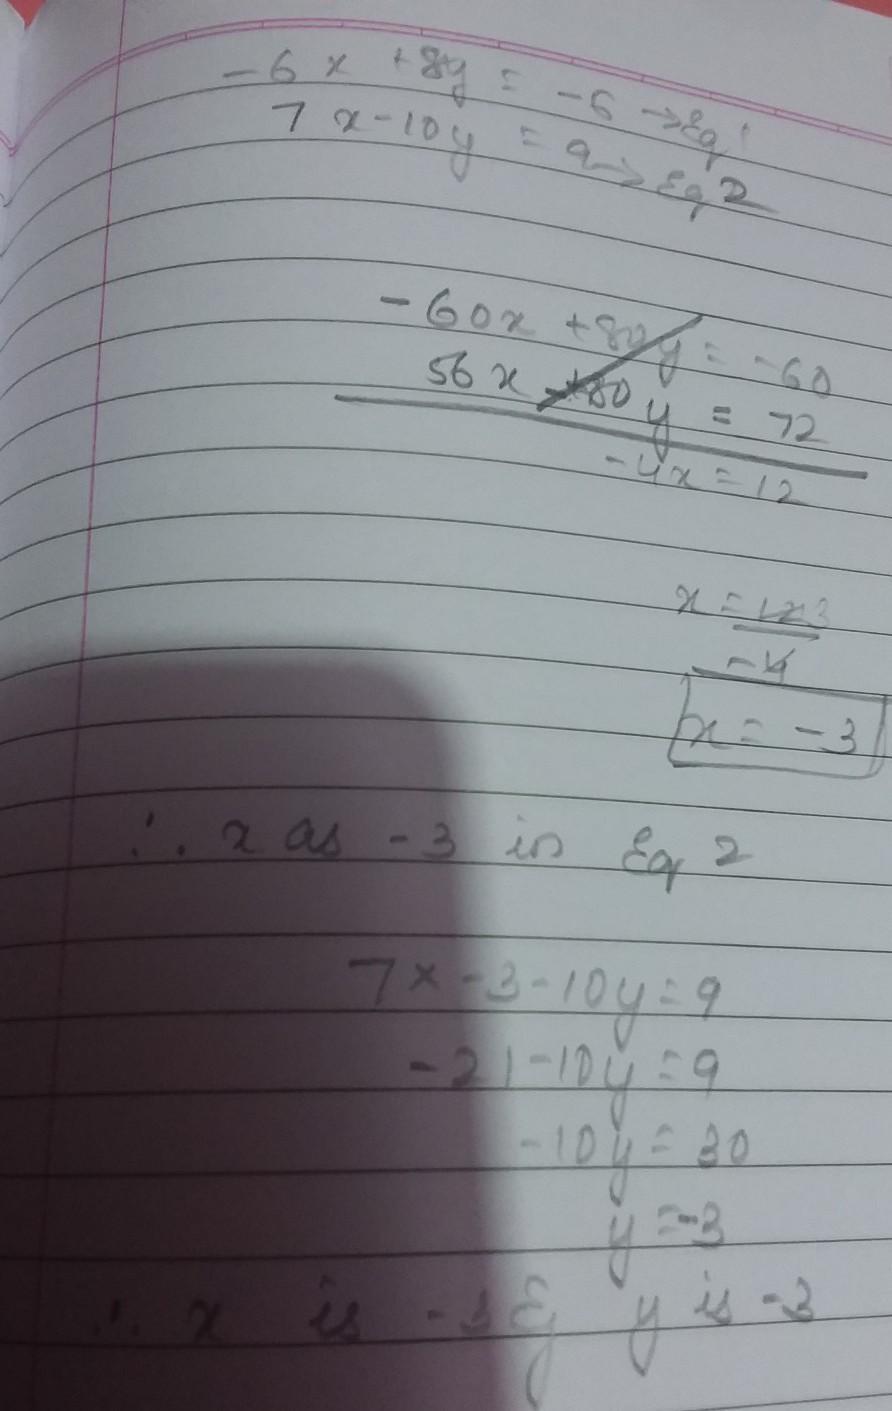 -6x +8y = -6 → Eq 1
7x-10y = 9 → Eq 2
-60x +80y = -60
56x -80y = 72
-4x = 12
x = 12 3
-4
x = -3
∴ x as -3 in Eq 2
7x-3-10y=9
-21-10y=9
-10y=30
y=-3
∴ x is -3 & y is -3